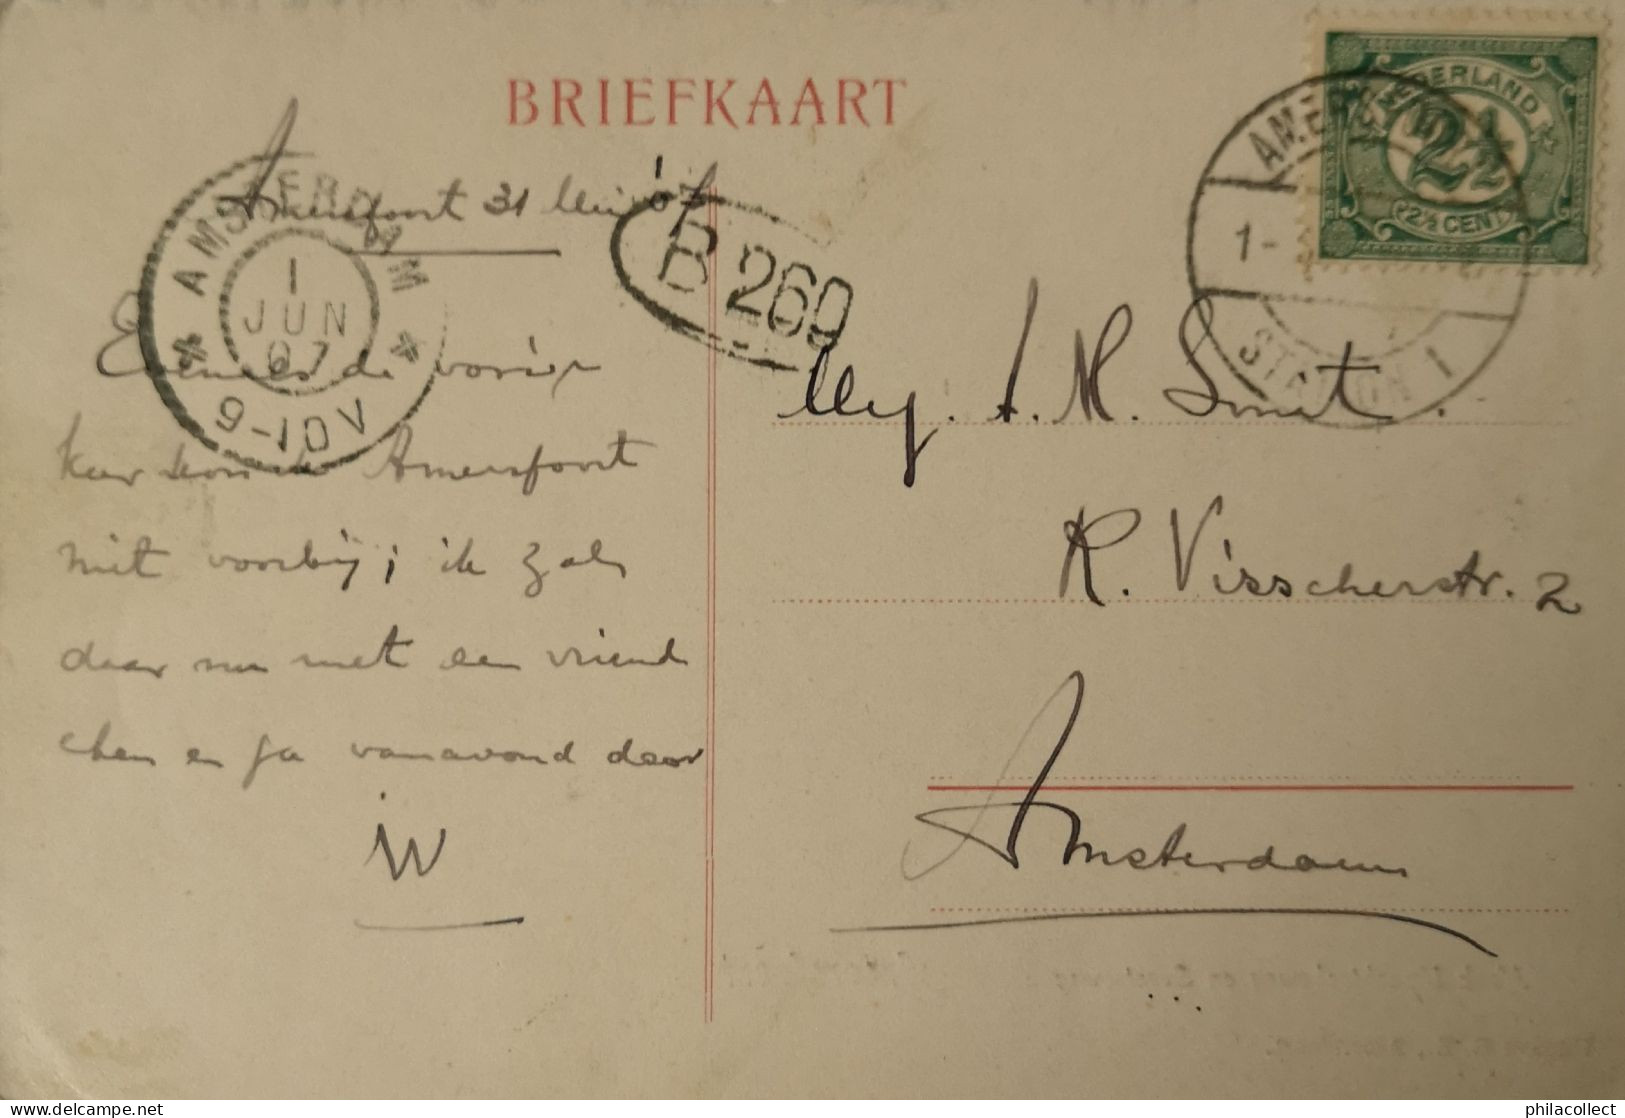 BRIEFKAART
Amersfoort 31 Mei '07
AMSTERDAM
1
JUN
07
9-10V
B 269
NEDERLAND
2½
2½ CENT
AMERSFOORT
1-
STATION 1
Evenals de vorige
keer kon ik Amersfoort
niet voorbij; ik zal
daar nu met een vriend
chen en ga vanavond door
W
Mej. A. M. Smit.
R. Visscherstr. 2
Amsterdam
philacollect
delcampe.net